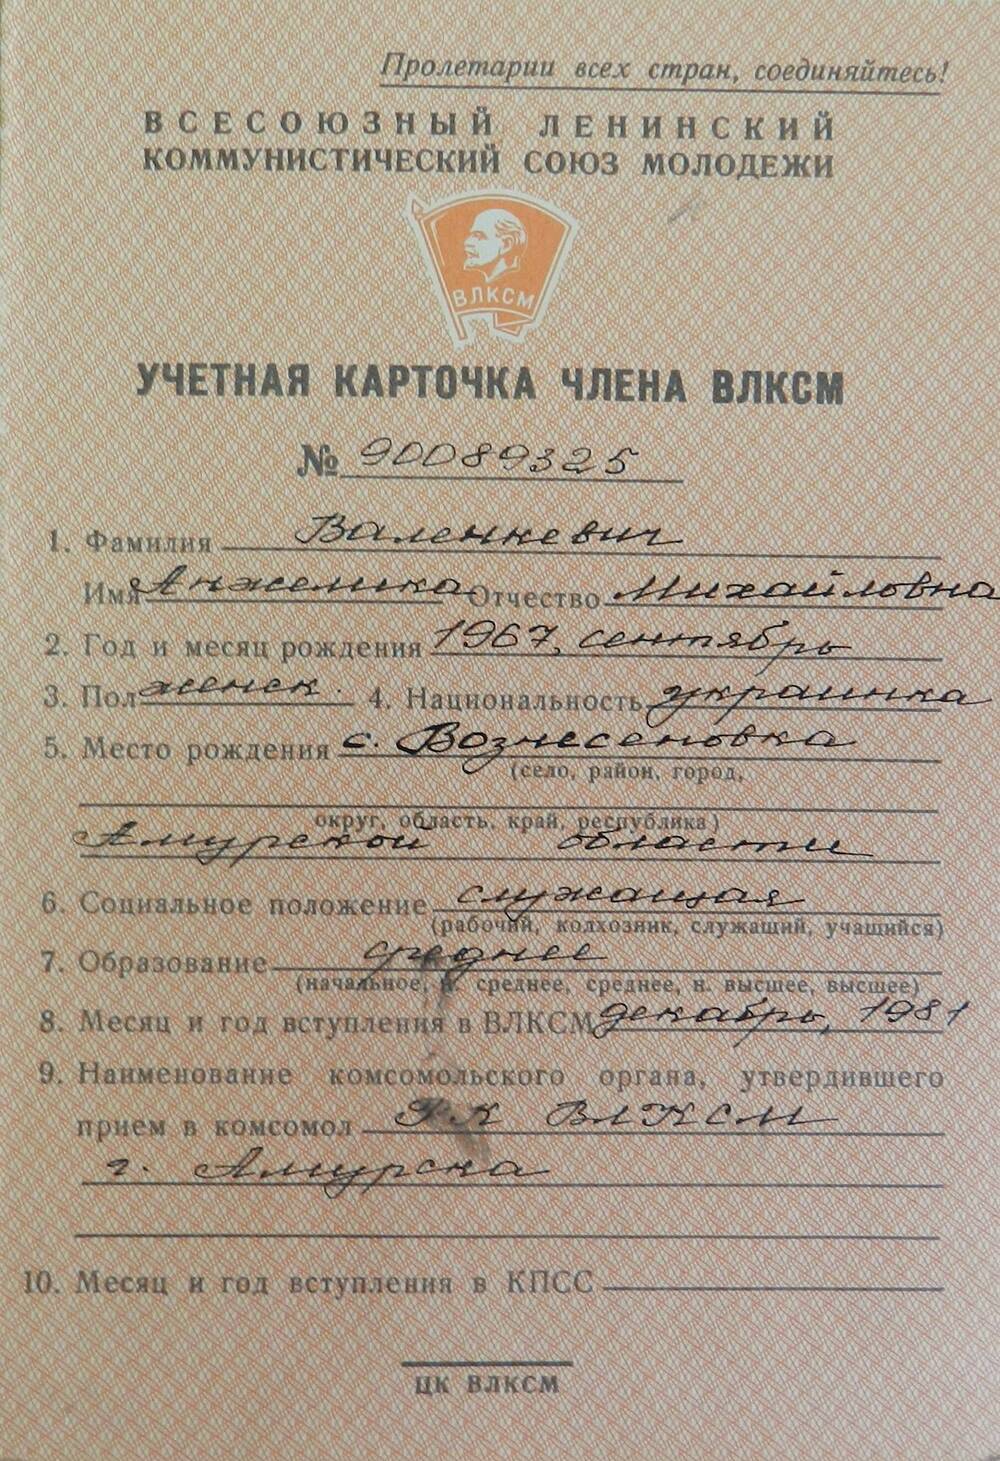 Пролетарии всех стран, соединяйтесь!
ВСЕСОЮЗНЫЙ ЛЕНИНСКИЙ
КОММУНИСТИЧЕСКИЙ СОЮЗ МОЛОДЕЖИ
ВЛКСМ
УЧЕТНАЯ КАРТОЧКА ЧЛЕНА ВЛКСМ
№ 90089325
1. Фамилия Валенкевич
Имя Анжелика Отчество Михайловна
2. Год и месяц рождения 1967, сентябрь
3. Пол женск. 4. Национальность украинка
5. Место рождения с. Вознесеновка
(село, район, город,
округ, область, край, республика)
Амурской области
6. Социальное положение служащая
(рабочий, колхозник, служащий, учащийся)
7. Образование среднее
(начальное, н. среднее, среднее, н. высшее, высшее)
8. Месяц и год вступления в ВЛКСМ декабрь, 1981
9. Наименование комсомольского органа, утвердившего
прием в комсомол РК ВЛКСМ
г. Амурска
10. Месяц и год вступления в КПСС
ЦК ВЛКСМ